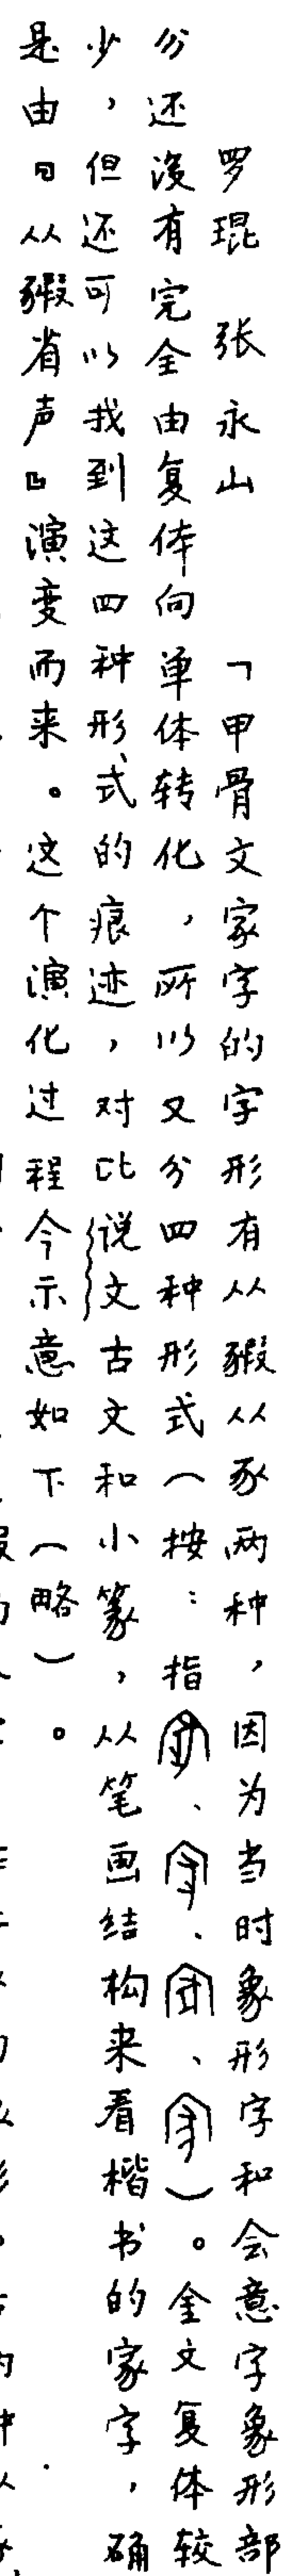 罗琨 张永山 「甲骨文家字的字形有从豭从豕两种，因为当时象形字和会意字象形部
分还没有完全由复体向单体转化，所以又分四种形式（按：指、、、）。金文复体较
少，但还可以找到这四种形式的痕迹，对比说文古文和小篆，从笔画结构来看楷书的家字，确
是由『从豭省声』演变而来。这个演化过程今示意如下（略）。